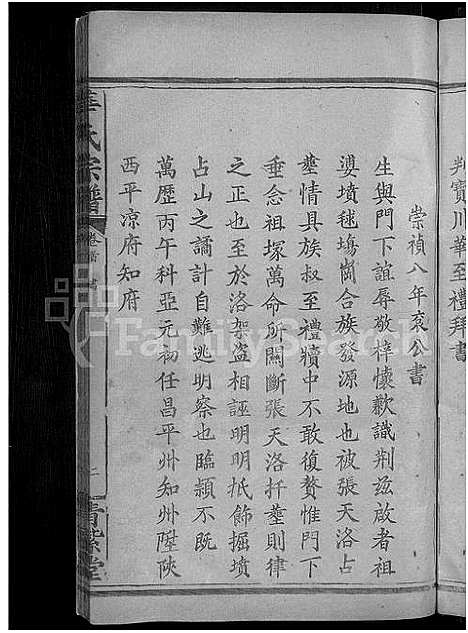 判寶川華至禮拜書
崇禎八年袞公書
生與門下誼辱敬梓懷歉識荆茲啟者祖
婆墳毬塲崗合族發源地也被張天洛占
塟情具族叔至禮牘中不敢復贅惟門下
垂念祖塚萬命所關斷張天洛扦塟則律
之正也至於洛架盜相誣明明抵飾掘墳
占山之譎計自難逃明察也臨頴不既
萬歷丙午科亞元初任昌平州知州陞陝
西平凉府知府
華氏宗譜
卷首 書
一
青紫堂
FamilySearch